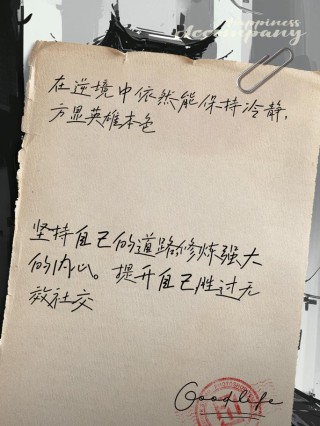 happiness
Accompany
在逆境中依然能保持冷静，
方显英雄本色
坚持自己的道路修炼强大
的内心。提升自己胜过无
效社交
Goodlife